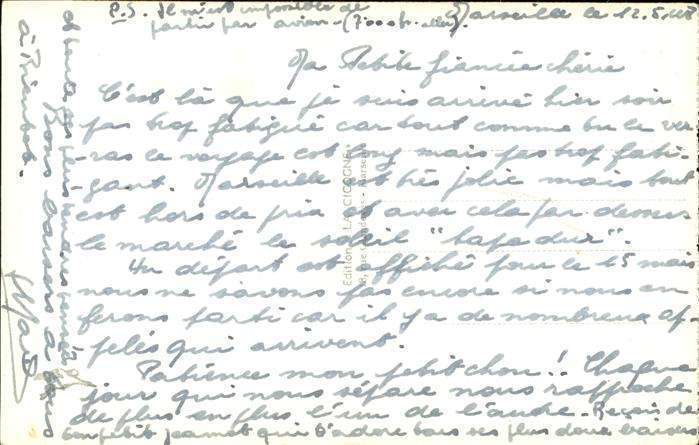 P.S. Il m'est impossible de
partir par avion - (7000 fr. aller).
Marseille le 12.5.48
Ma Petite fiancée chérie
C'est là que je suis arrivé hier soir
pas trop fatigué car tout comme tu le ver-
-ras le voyage est long mais pas trop fati-
-gant. Marseille est très jolie mais tout
est hors de prix et avec cela par dessus
le marché le soleil "tape dur".
Un départ est affiché pour le 15 mais
nous ne savons pas encore si nous en
ferons parti car il y a de nombreux ap-
-pelés qui arrivent.
Patience mon petit chou! Chaque
jour qui nous sépare nous rapproche
de plus en plus l'un de l'autre. Reçois de
ton petit Jeannot qui t'adore tous ses plus doux baisers
et toutes ses plus tendres pensées
Bons baisers à tous
à Bientôt.
Edition LA CICOGNE
Marseille